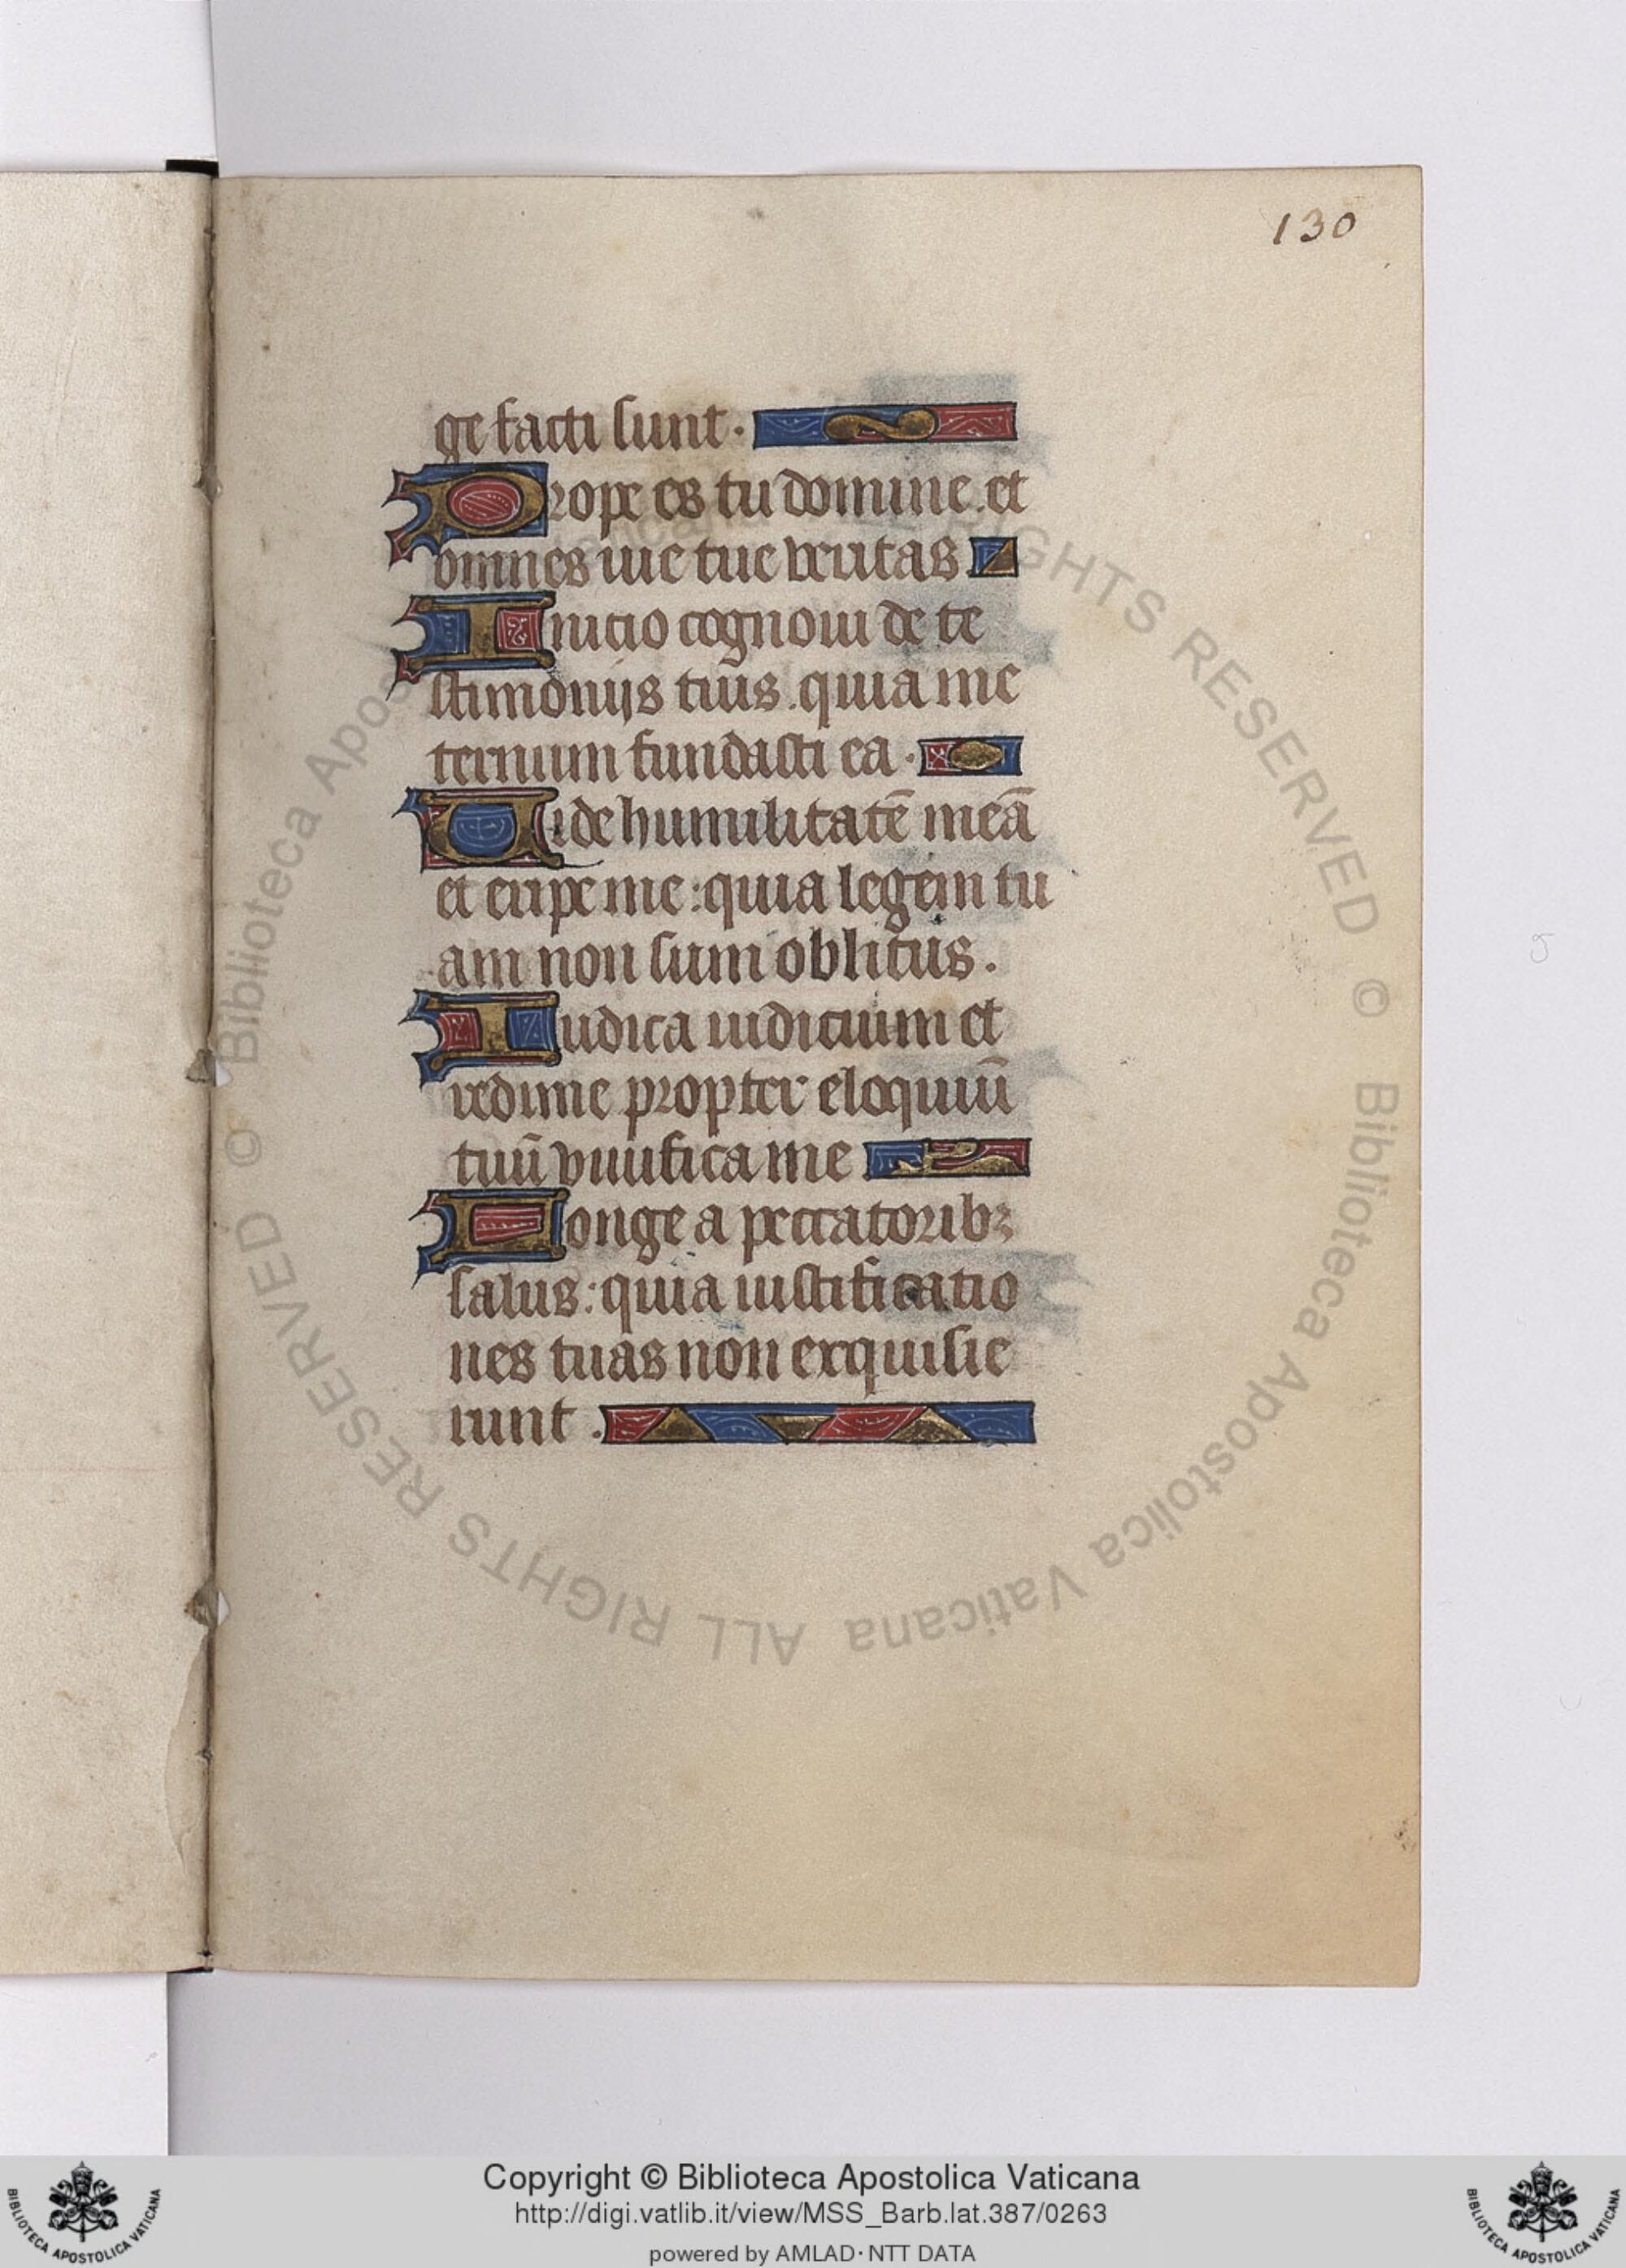 130
ge facti sunt.
Prope es tu domine. et
omnes uie tue ueritas
Initio cognoui de te
stimonijs tuis. quia in e
ternum fundasti ea.
Uide humilitatē meā
et eripe me: quia legem tu
am non sum oblitus.
Iudica iudicium et
redime propter eloquiū
tuū viuifica me
Longe a peccatoribꝫ
salus: quia iustificatio
nes tuas non exquisie
runt.
© Biblioteca Apostolica Vaticana ALL RIGHTS RESERVED © Biblioteca Apostolica Vaticana ALL RIGHTS RESERVED
Copyright © Biblioteca Apostolica Vaticana
http://digi.vatlib.it/view/MSS_Barb.lat.387/0263
powered by AMLAD·NTT DATA
BIBLIOTECA APOSTOLICA VATICANA
BIBLIOTECA APOSTOLICA VATICANA